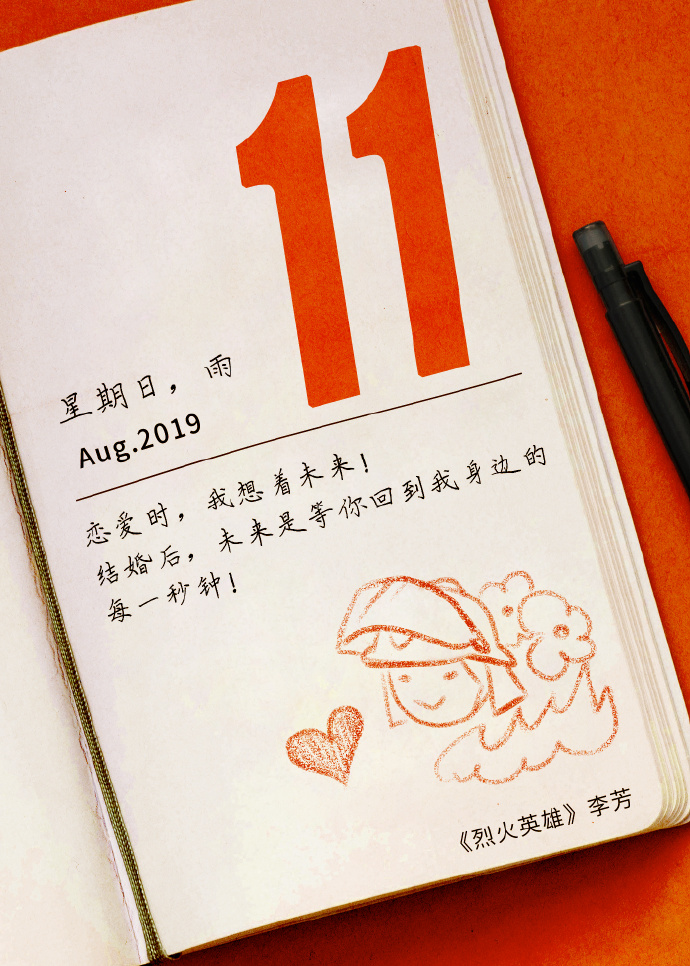 11
星期日，雨
Aug.2019
恋爱时，我想着未来！
结婚后，未来是等你回到我身边的
每一秒钟！
《烈火英雄》李芳